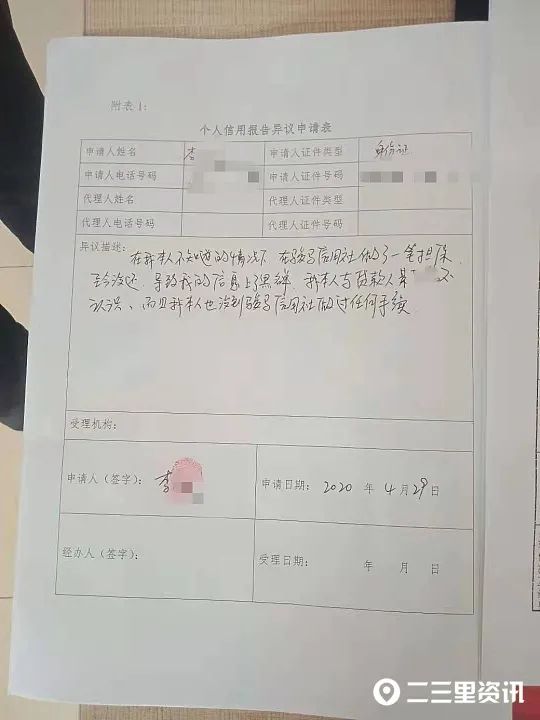 附表1:
个人信用报告异议申请表
申请人姓名 李 申请人证件类型 身份证
申请人电话号码 申请人证件号码
代理人姓名 代理人证件类型
代理人电话号码 代理人证件号码
异议描述: 在我本人不知道的情况下 在骏马信用社做了一笔担保,
至今没还,导致我的信息上了黑名单 我本人与贷款人 不
认识、而且我本人也没到骏马信用社做过任何手续
受理机构:
申请人(签字): 李 申请日期: 2020 年 4 月 29 日
经办人(签字): 受理日期: 年 月 日
二三里资讯